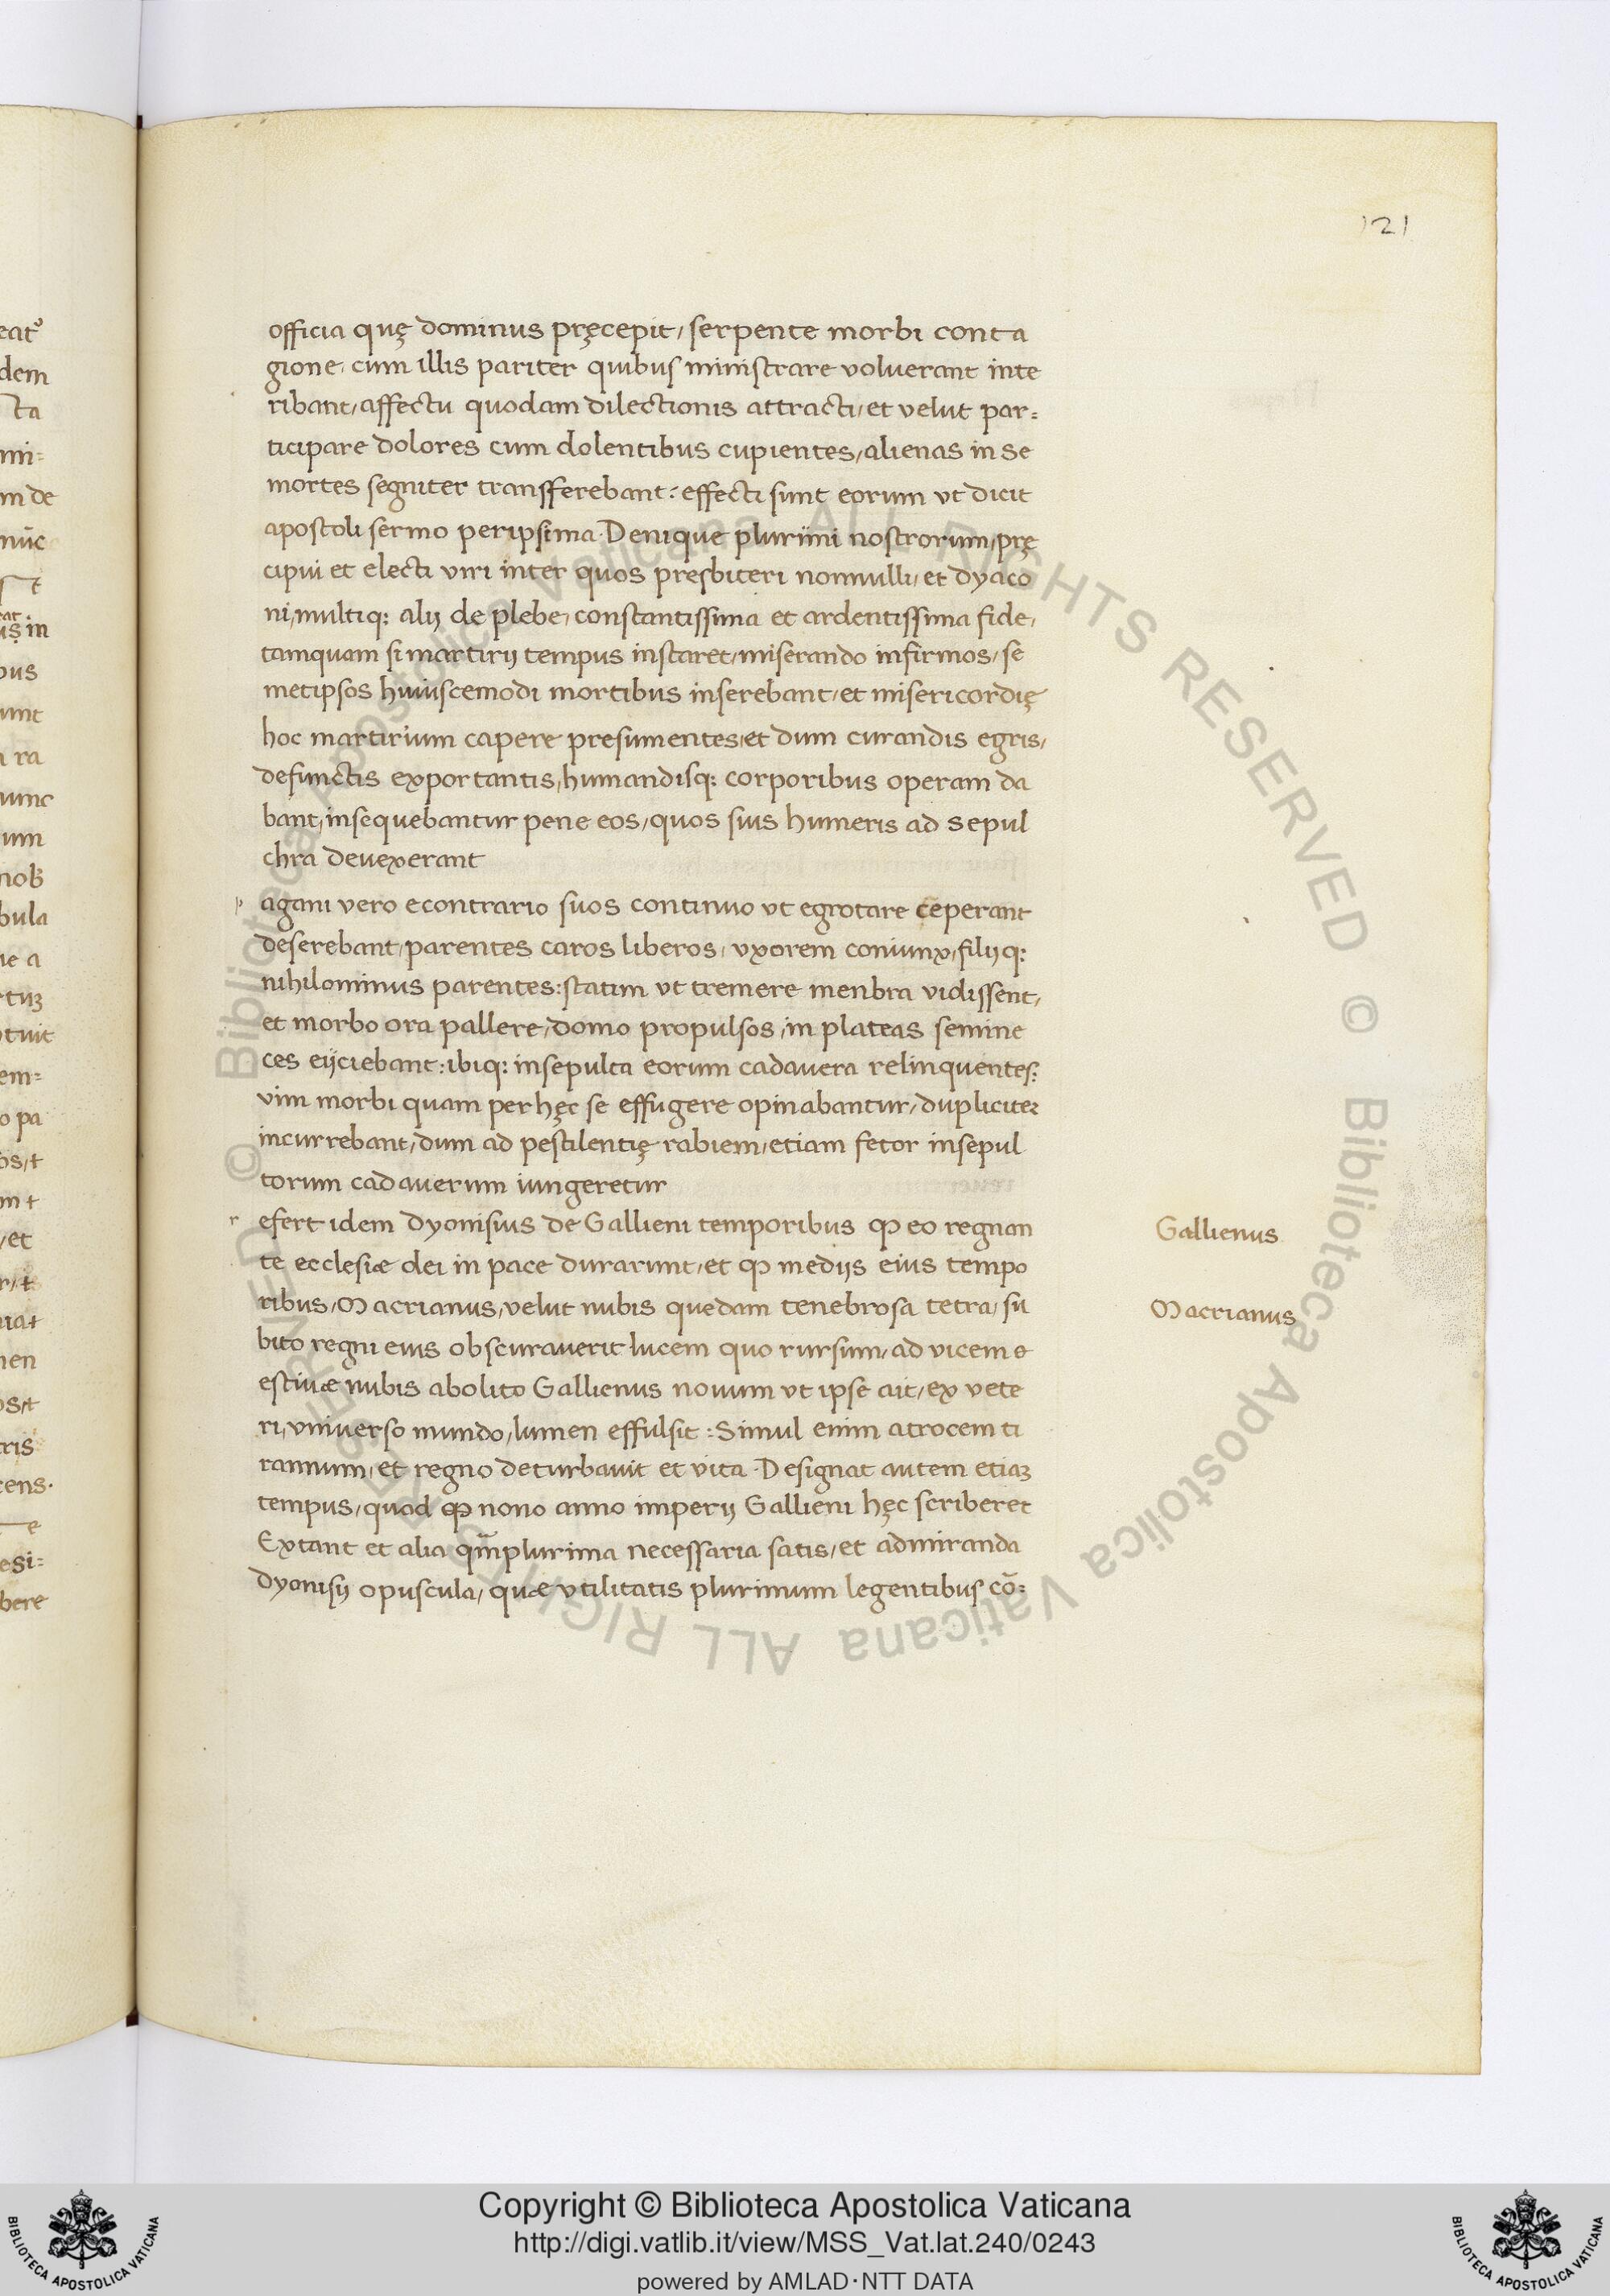 121
officia quę dominus pręcepit, serpente morbi conta
gione, cum illis pariter quibus ministrare voluerant inte
ribant, affectu quodam dilectionis attracti, et velut par=
ticipare dolores cum dolentibus cupientes, alienas in se
mortes segniter transfferebant: effecti sunt eorum vt dicit
apostoli sermo peripsima. Denique plurimi nostrorum, prę
cipui et electi viri inter quos presbiteri nonnulli, et dyaco
ni, multiq; alij de plebe, constantissima et ardentissima fide,
tamquam si martirij tempus instaret, miserando infirmos, se
metipsos huiuscemodi mortibus inserebant, et misericordię
hoc martirium capere presumentes, et dum curandis egris,
defunctis exportantis, humandisq; corporibus operam da
bant, insequebantur pene eos, quos suis humeris ad sepul
chra deuexerant
p agani vero econtrario suos continuo vt egrotare ceperant
deserebant, parentes caros liberos, vxorem coniunx, filijq;
nihilominus parentes: statim vt tremere menbra vidissent,
et morbo ora pallere, domo propulsos, in plateas semine
ces eijciebant: ibiq; insepulta eorum cadauera relinquentes:
vim morbi quam per hęc se effugere opinabantur, dupliciter
incurrebant, dum ad pestilentię rabiem, etiam fetor insepul
torum cadauerum iungeretur
r efert idem Dyonisius de Gallieni temporibus ꝙ eo regnan
te ecclesiæ dei in pace durarunt, et ꝙ medijs eius tempo
ribus, Macrianus, velut nubis quedam tenebrosa tetra, su
bito regni eius obscurauerit lucem quo rursum, ad vicem e
estiuæ nubis abolito Gallienus nouum vt ipse ait, ex vete
ri, vniuerso mundo, lumen effulsit: Simul enim atrocem ti
rannum, et regno deturbauit et vita. Designat autem etiaʒ
tempus, quod ꝙ nono anno imperij Gallieni hęc scriberet
Extant et alia qm̄plurima necessaria satis, et admiranda
Dyonisij opuscula, quæ vtilitatis plurimum legentibus cō=
Gallienus
Macrianus
Copyright © Biblioteca Apostolica Vaticana
http://digi.vatlib.it/view/MSS_Vat.lat.240/0243
powered by AMLAD·NTT DATA
BIBLIOTECA APOSTOLICA VATICANA
BIBLIOTECA APOSTOLICA VATICANA
© Biblioteca Apostolica Vaticana ALL RIGHTS RESERVED © Biblioteca Apostolica Vaticana ALL RIGHTS RESERVED